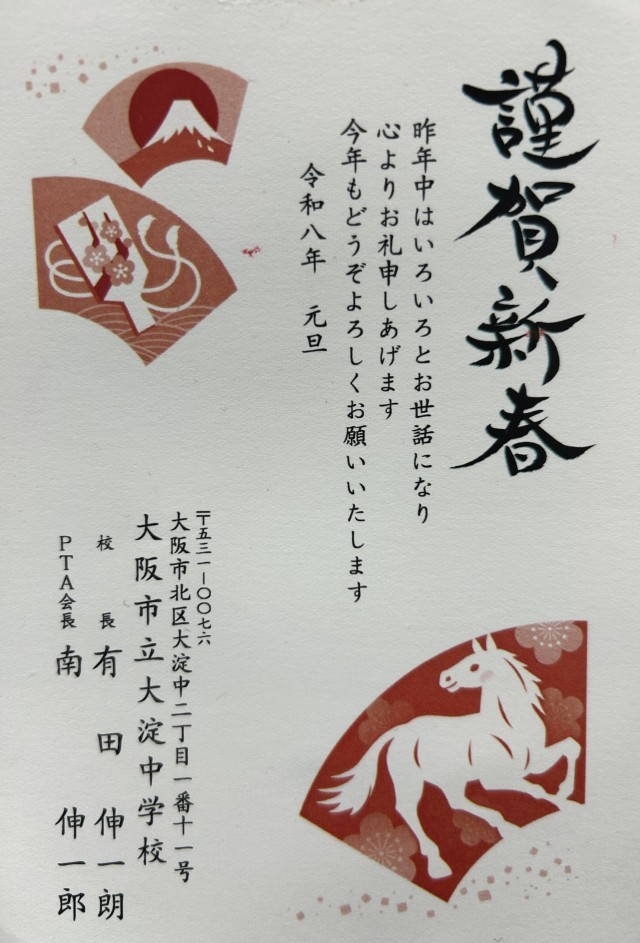 謹賀新春
昨年中はいろいろとお世話になり
心よりお礼申しあげます
今年もどうぞよろしくお願いいたします
令和八年　元旦
〒五三一－〇〇七六
大阪市北区大淀中二丁目一番十一号
大阪市立大淀中学校
校長　有田　伸一朗
PTA会長　南　伸一郎